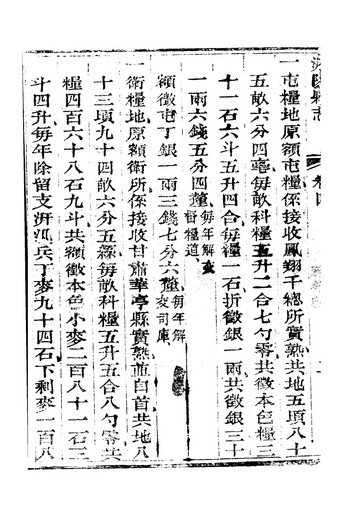 汧陽縣志
卷四
一屯糧地原額屯糧係接收鳳翔千總所實熟共地五頃八十
五畝六分四毫每畝科糧五升二合七勺零共徵本色糧三
十一石六斗五升四合每糧一石折徵銀一兩共徵銀三十
一兩六錢五分四釐每年解交督糧道
額徵屯丁銀一兩三錢七分六釐每年解交司庫
一衛糧地原額衛所係接收甘肅華亭縣實熟並自首共地八
十三頃九十四畝六分五釐每畝科糧五升五合八勺零共
糧四百六十八石九斗共額徵本色小麥二百八十一石三
斗四升每年除留支汧汛兵丁麥九十四石下剩麥一百八